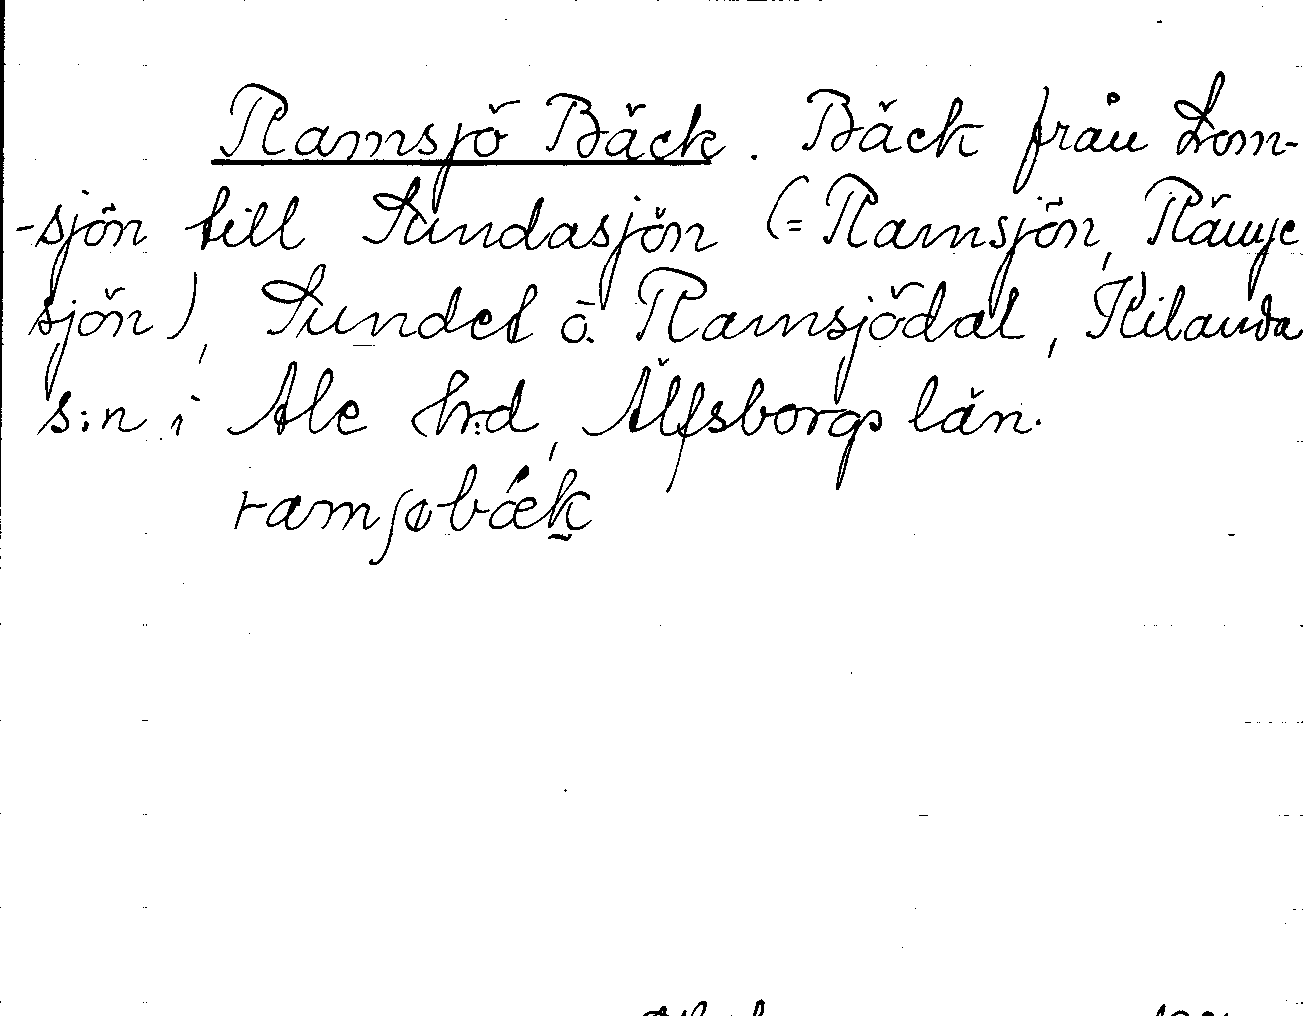 Ramsjö Bäck. Bäck från Lom-
-sjön till Sundasjön (= Ramsjön, Rämje
sjön), Sundet o. Ramsjödal, Kilanda
s:n i Ale h:d, Älfsborgs län.
ramʃɵbæk